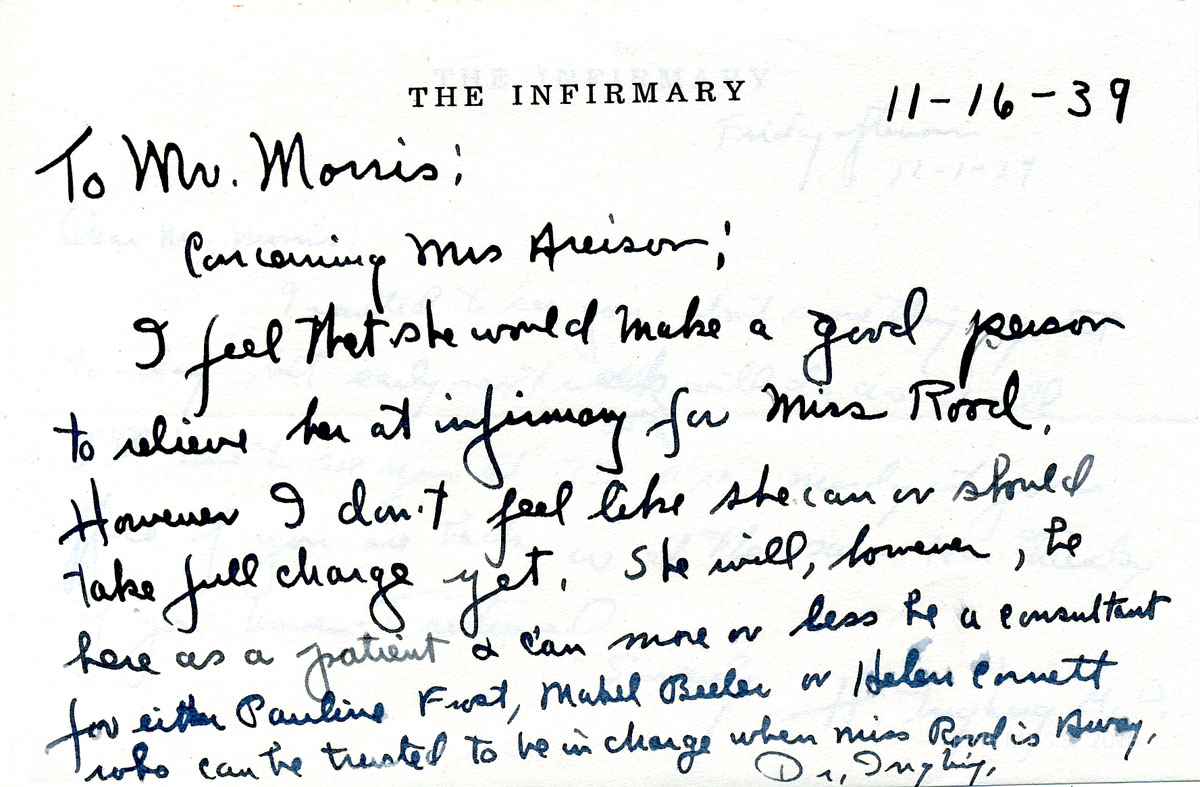 THE INFIRMARY
11-16-39
To Mr. Morris:
Concerning Mrs Areison:
I feel that she would make a good person
to relieve her at infirmary for Miss Rood.
However I don't feel like she can or should
take full charge yet. She will, however, be
here as a patient & can more or less be a consultant
for either Pauline Frost, Mabel Beeler or Helen Cornett
who can be trusted to be in charge when Miss Rood is Away.
Dr.